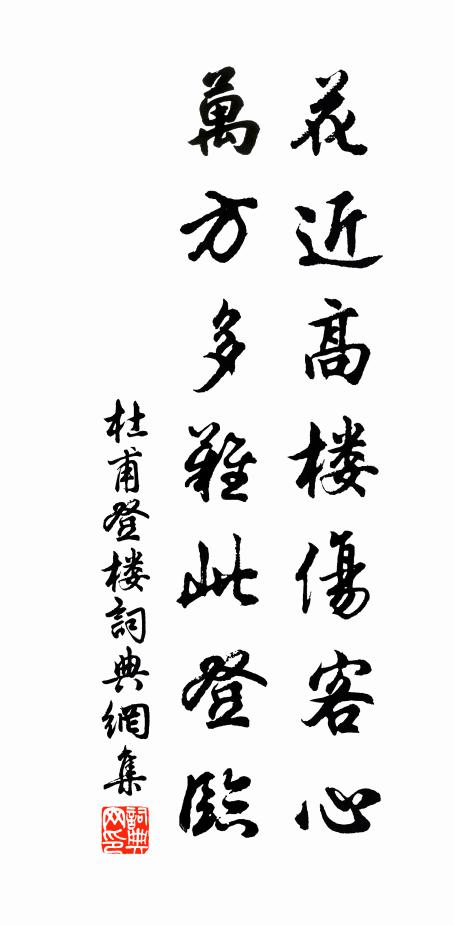 花近高楼傷客心
萬方多難此登臨
杜甫登楼詞典網集
詞典网印